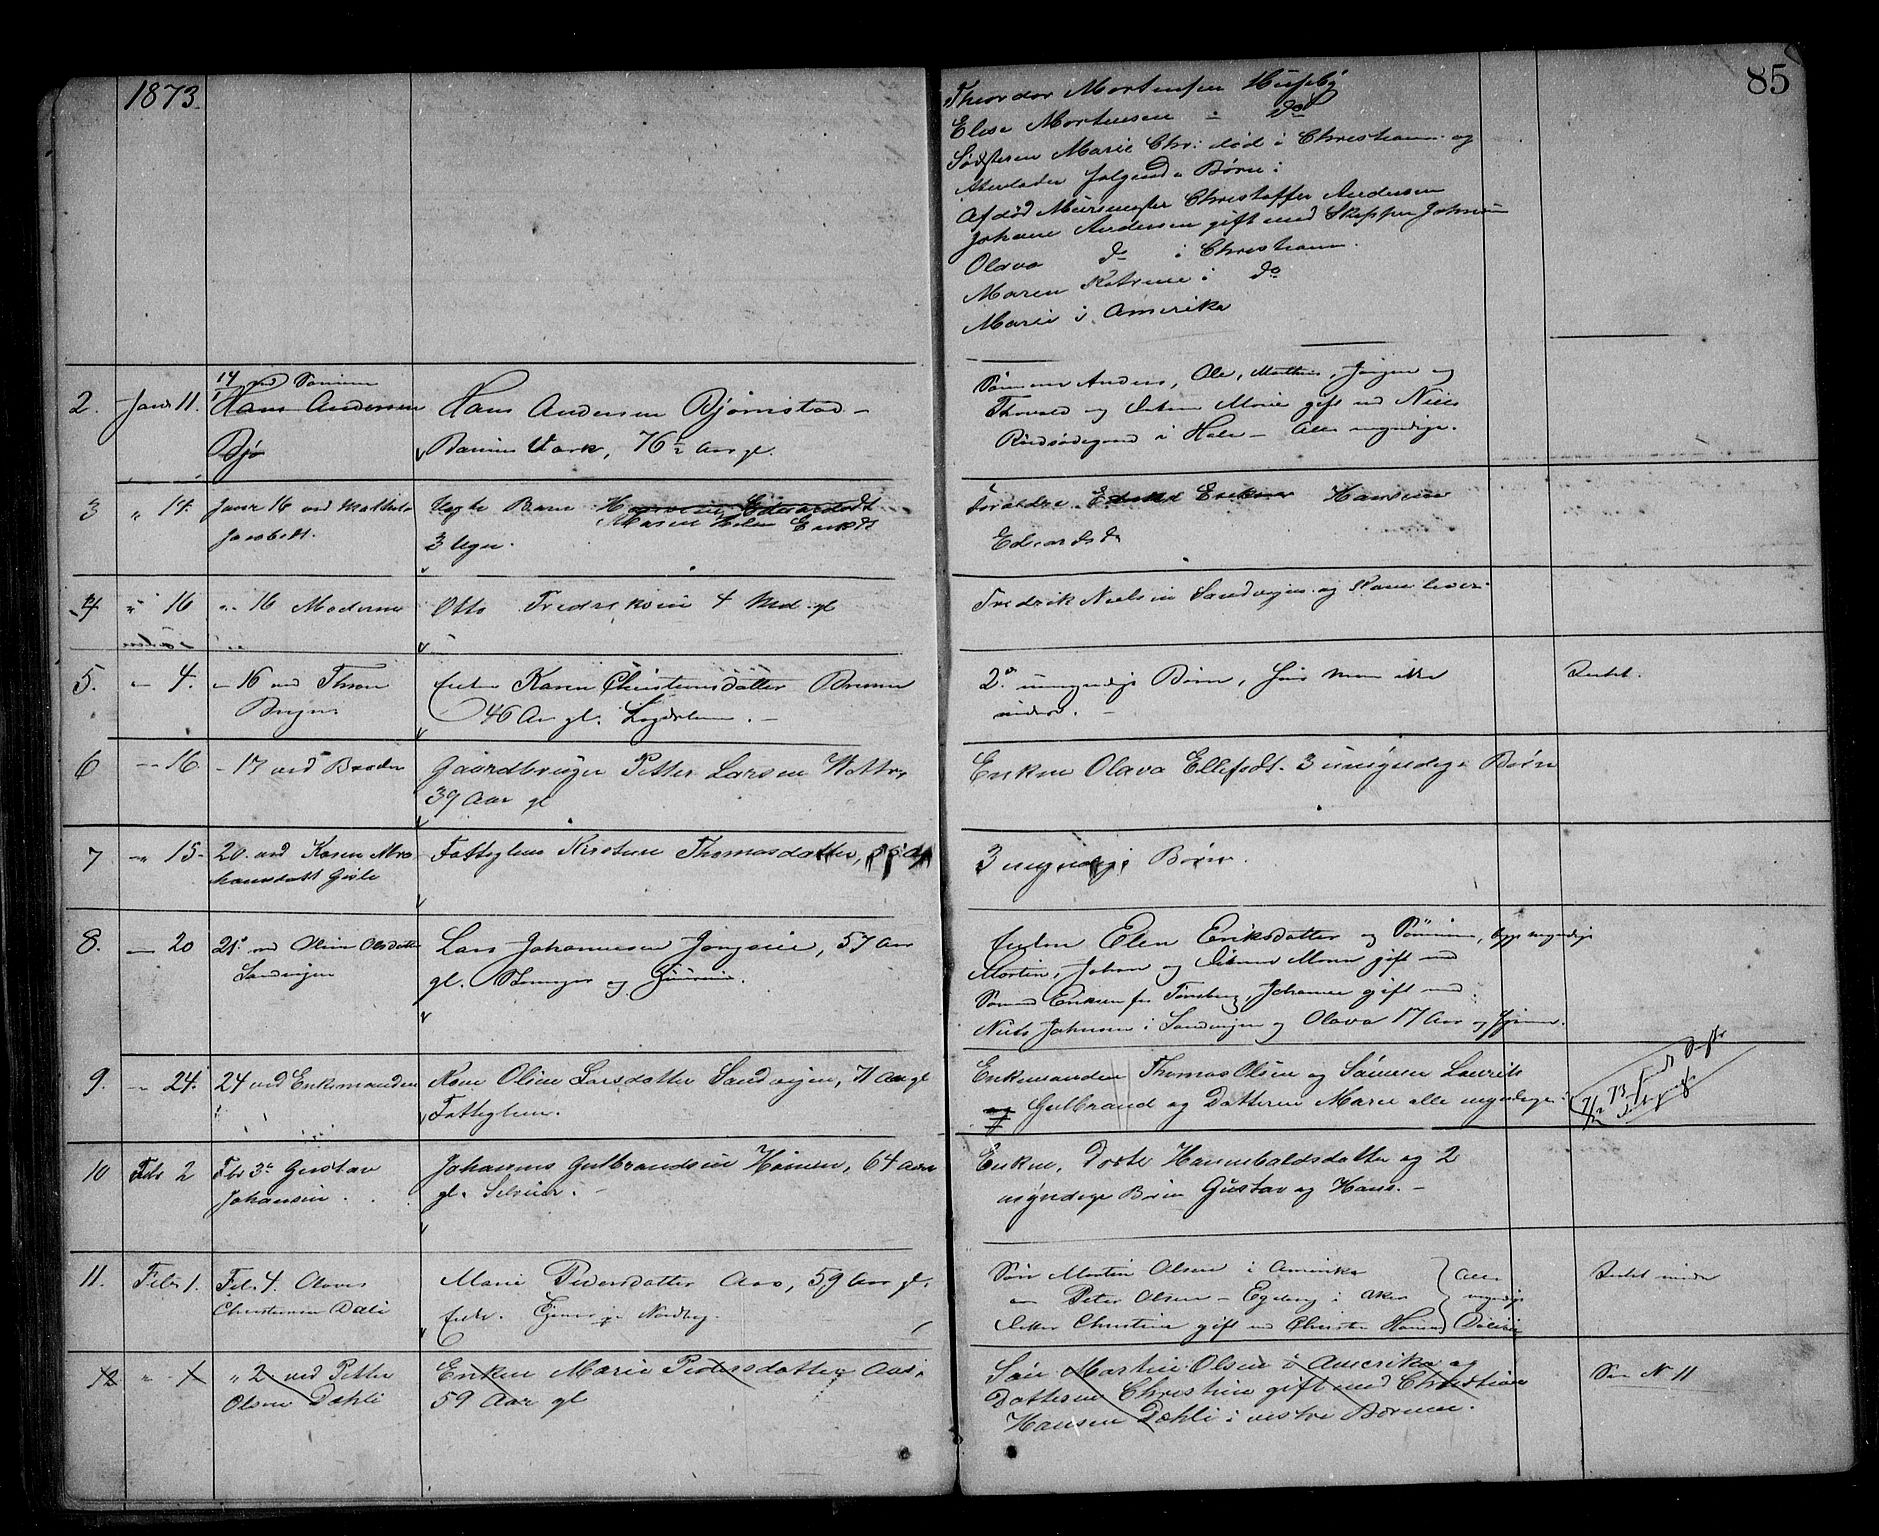 1873.
85
Theodor Mortensen Huseby
Elise Mortensen - do
Søsteren Marie Chr: død i Christiania og
efterlader følgende Børn:
Afdød Muurmester Christoffer Andersen
Johane Andersen gift med Skipper Johnsen
Olava do i Christiania.
Maren Katrine i do
Marie i Amerika
2. Janr 11. 14 ved Sønnen
Hans Andersen
Bjø
Hans Andersen Bjørnstad
Bærums Værk, 76 Aar gl.
Sønnerne Anders, Ole, Mathias, Jørgen og
Thorvald og Datteren Marie gift med Niels
i Hole - Alle myndige.
3 " 14. Janr 16 ved Mathilde
Jacobsdt.
Uægte Barn
Maren Helene Eriksdt
3 Uger.
Forældre Eriksen Hansine
Edvardsdt
4 " 16 " 16 Moderen
Otto Fredriksen 4 Md. gl
Fredrik Nielsen Sandvigen og Kone lever
5. - 4. - 16 ved Thron
Enken Karen Christiansdatter
46 Aar gl. Lægdslem. -
2 umyndige Børn, hvis Navn ikke
vides. -
Intet.
6 - 16 - 17 ved Broder
Gaardbruger Petter Larsen
39 Aar gl
Enken Olava Ellefsdt. 3 umyndige Børn
7 - 15 - 20. ved Karen
Fattiglem Kirstine Thomasdatter,
3 myndige Børn.
8. - 20 21. ved Oline Olsdatter
Sandvigen
Lars Johannesen Jongseie, 57 Aar
gl.
Enken Elen Eriksdatter og Sønnerne,
Morten, Johan og Datteren gift med
Eriksen fra Tønsberg, Johanne gift med
Niels Johnsen i Sandvigen og Olava 17 Aar og hjemme.
9. - 24. 24 ved Enkemanden
Kone Oline Larsdatter Sandvigen, 71 Aar gl
Fattiglem.
Enkemanden Thomas Olsen og Sønnen Laurits
og Gulbrand og Datteren Marie alle myndige.
10 Feb 2 Feb 3. Gustav
Johansen.
Johannes Gulbrandsen 64 Aar
gl. Selveier. -
Enken, Dorte Hannibaldsdatter og 2
myndige Børn Gustav og Hans. -
11. Feb 1. Feb. 4. Olaves
Christensen Dæli
Marie Pedersdatter Aas, 59 Aar gl.
Enke.
Søn Morten Olsen i Amerika
Peter Olsen - Egeberg i Aker
Datter Christine gift med Hansen Dæli
Alle
myndige
Intet
12 " 1 " 2 ved Petter
Olsen Dæhli
Enken Marie Pedersdatter Aas,
59 Aar gl
Søn Martin Olsen i Amerika og
Datteren Christine gift med Christian
Hansen Dæhli i vestre Bærum.
Se N 11